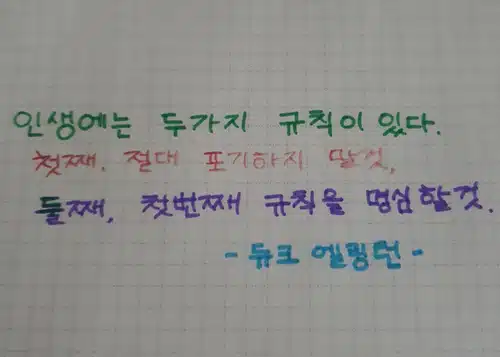 인생에는 두가지 규칙이 있다.
첫째. 절대 포기하지 말것,
둘째, 첫번째 규칙을 명심할것.
- 듀크 엘링턴 -